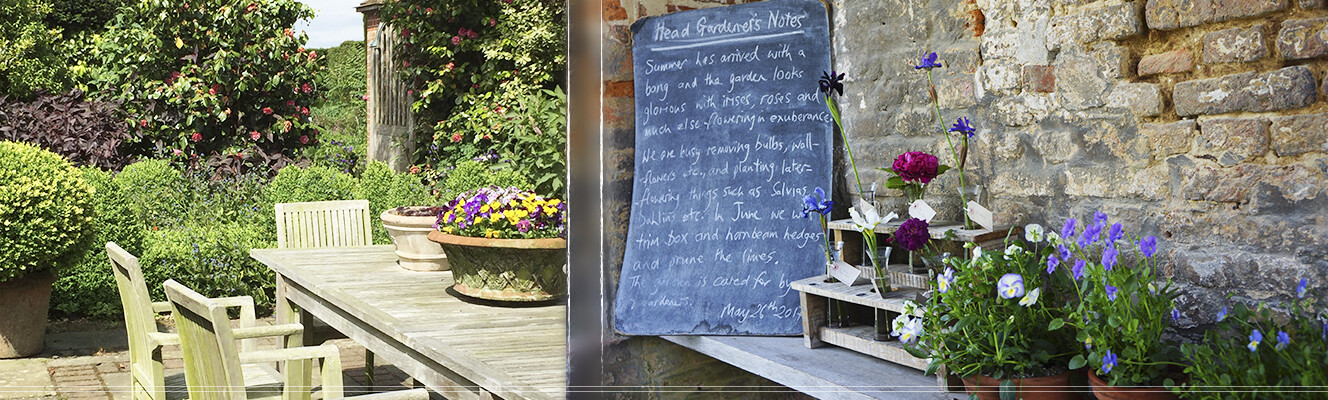 Head Gardener's Notes
Summer has arrived with a
bang and the garden looks
glorious with irises, roses and
much else flowering in exuberance
We are busy removing bulbs, wall-
flowers etc, and planting later-
flowering things such as Salvias
Dahlias etc. In June we w
trim box and hornbeam hedges
and prune the limes.
The garden is cared for by
2 gardeners.
May 26th 201